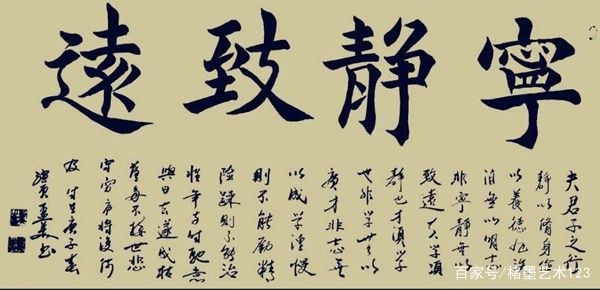 寧靜致遠
夫君子之行
靜以脩身儉
以養德非澹
泊無以明志
非寧靜無以
致遠夫學須
靜也才須學
也非學無以
廣才非志無
以成學淫慢
則不能勵精
險躁則不能治
性年与时馳意
與日去遂成枯
落多不接世悲
守窮廬將復何
及 庚子春
書
百家号/楮墨艺术123